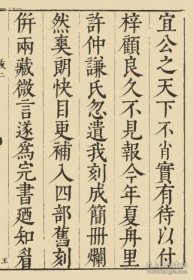 宜公之天下不肯實有待以付
梓顧良久不見報今年夏舟里
許仲謙氏忽遺我刻成簡冊爛
然奭朗快目更補入四部舊刻
併兩藏微言遂爲完書廼知省